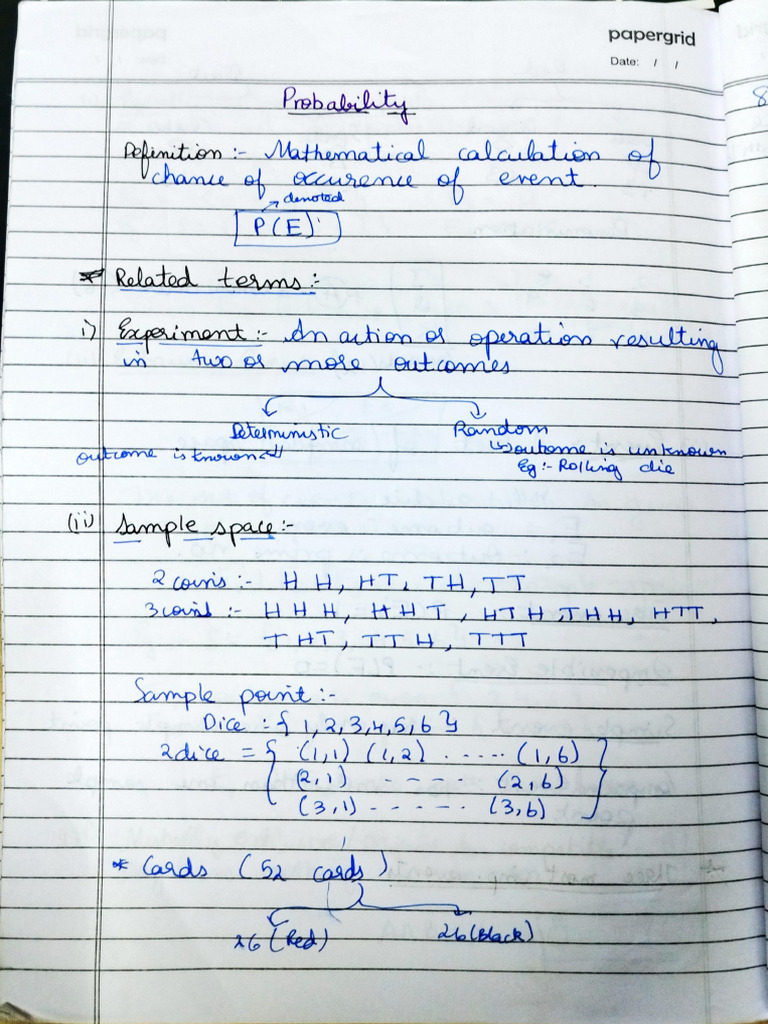 papergrid
Date: / /
Probability
Definition :- Mathematical calculation of
chance of occurence of event.
denoted
P(E)
* Related terms :-
i) Experiment :- An action or operation resulting
in two or more outcomes
Deterministic Random
outcome is known outcome is unknown
Eg :- Rolling die
(ii) Sample space :-
2 coins :- H H, HT, TH, TT
3 coins :- H H H, H H T, HTH, THH, HTT,
THT, TTH, TTT
Sample point :-
Dice : { 1, 2, 3, 4, 5, 6 }
2 dice = { (1,1) (1,2) ..... (1,6) }
(2,1) ..... (2,6)
(3,1) ...... (3,6)
* Cards (52 cards)
26 (Red) 26 (Black)
8